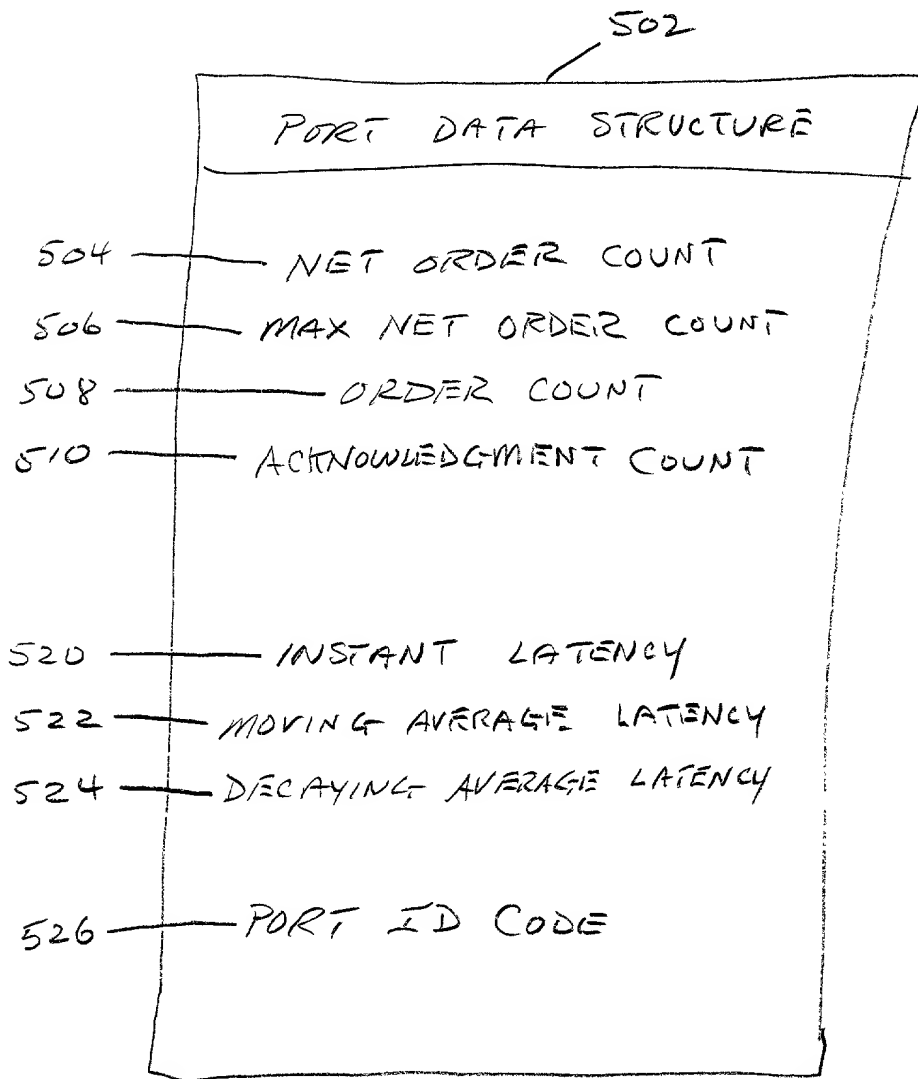 502
PORT DATA STRUCTURE
504 NET ORDER COUNT
506 MAX NET ORDER COUNT
508 ORDER COUNT
510 ACKNOWLEDGMENT COUNT
520 INSTANT LATENCY
522 MOVING AVERAGE LATENCY
524 DECAYING AVERAGE LATENCY
526 PORT ID CODE